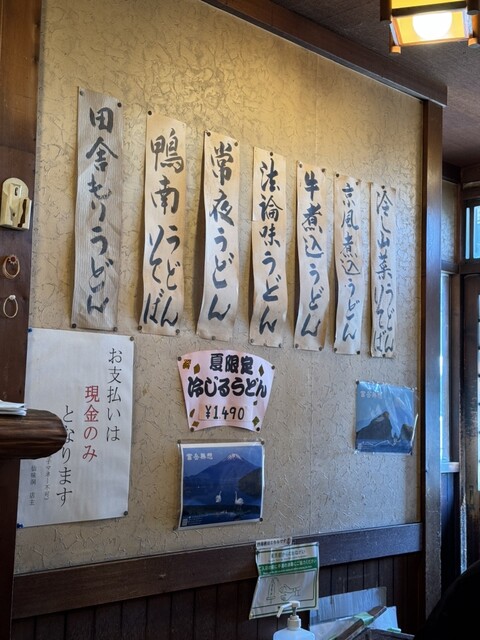 冷し山菜うどん
そば
京風煮込うどん
牛煮込うどん
法論味うどん
常夜うどん
鴨南うどん
そば
田舎もりうどん
夏限定
冷じるうどん
¥1490
お支払いは
現金のみ
となります